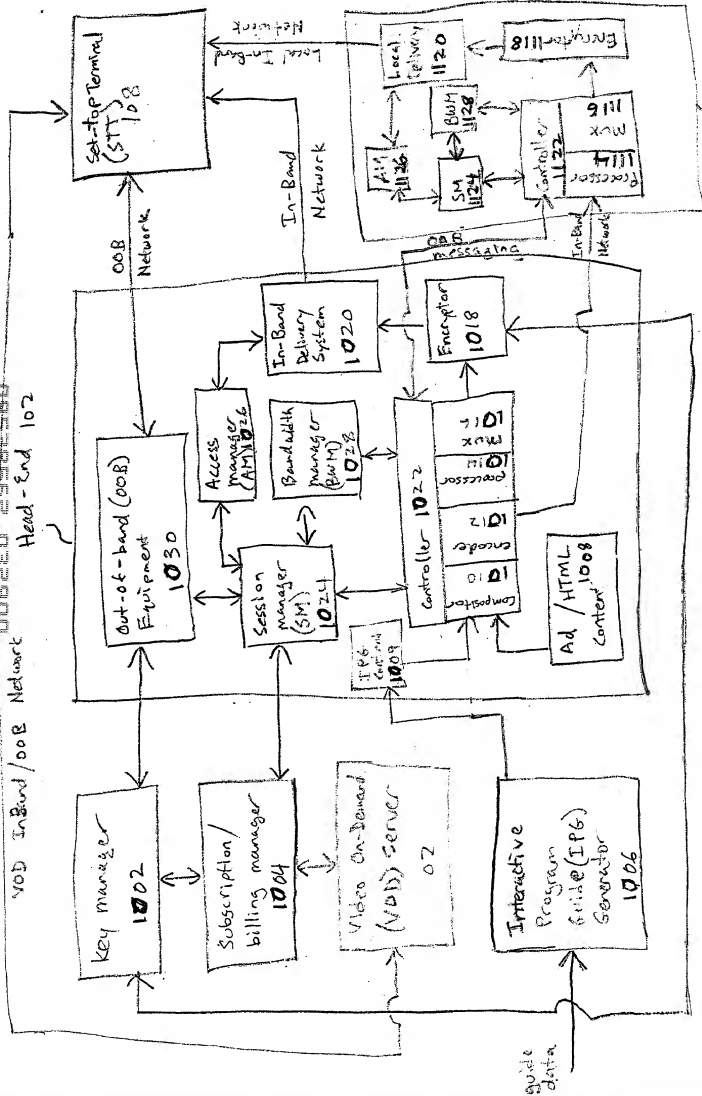 VOD InBand/OOB Network
Head-End 102
Key manager
1002
Subscription/
billing manager
1004
Video On-Demand
(VOD) Server
02
Interactive
Program
Guide (IPG)
Generator
1006
guide
data
Out-of-band (OOB)
Equipment
1030
Session
manager
(SM)
1024
Access
manager
(AM) 1026
Bandwidth
manager
(BWM)
1028
In-Band
Delivery
System
1020
IPG
1009
Controller 1022
Compositor
1010
encoder
1012
processor
1014
mux
1016
Encryptor
1018
Ad/HTML
Content 1008
OOB
Network
In-Band
Network
Set-top Terminal
(STT)
108
Local In-Band
Network
OOB
messaging
In-Band
Network
Local
Delivery
1120
AM
1126
BWM
1128
SM
1124
Controller
1122
Processor
1114
Mux
1116
Encryptor 1118